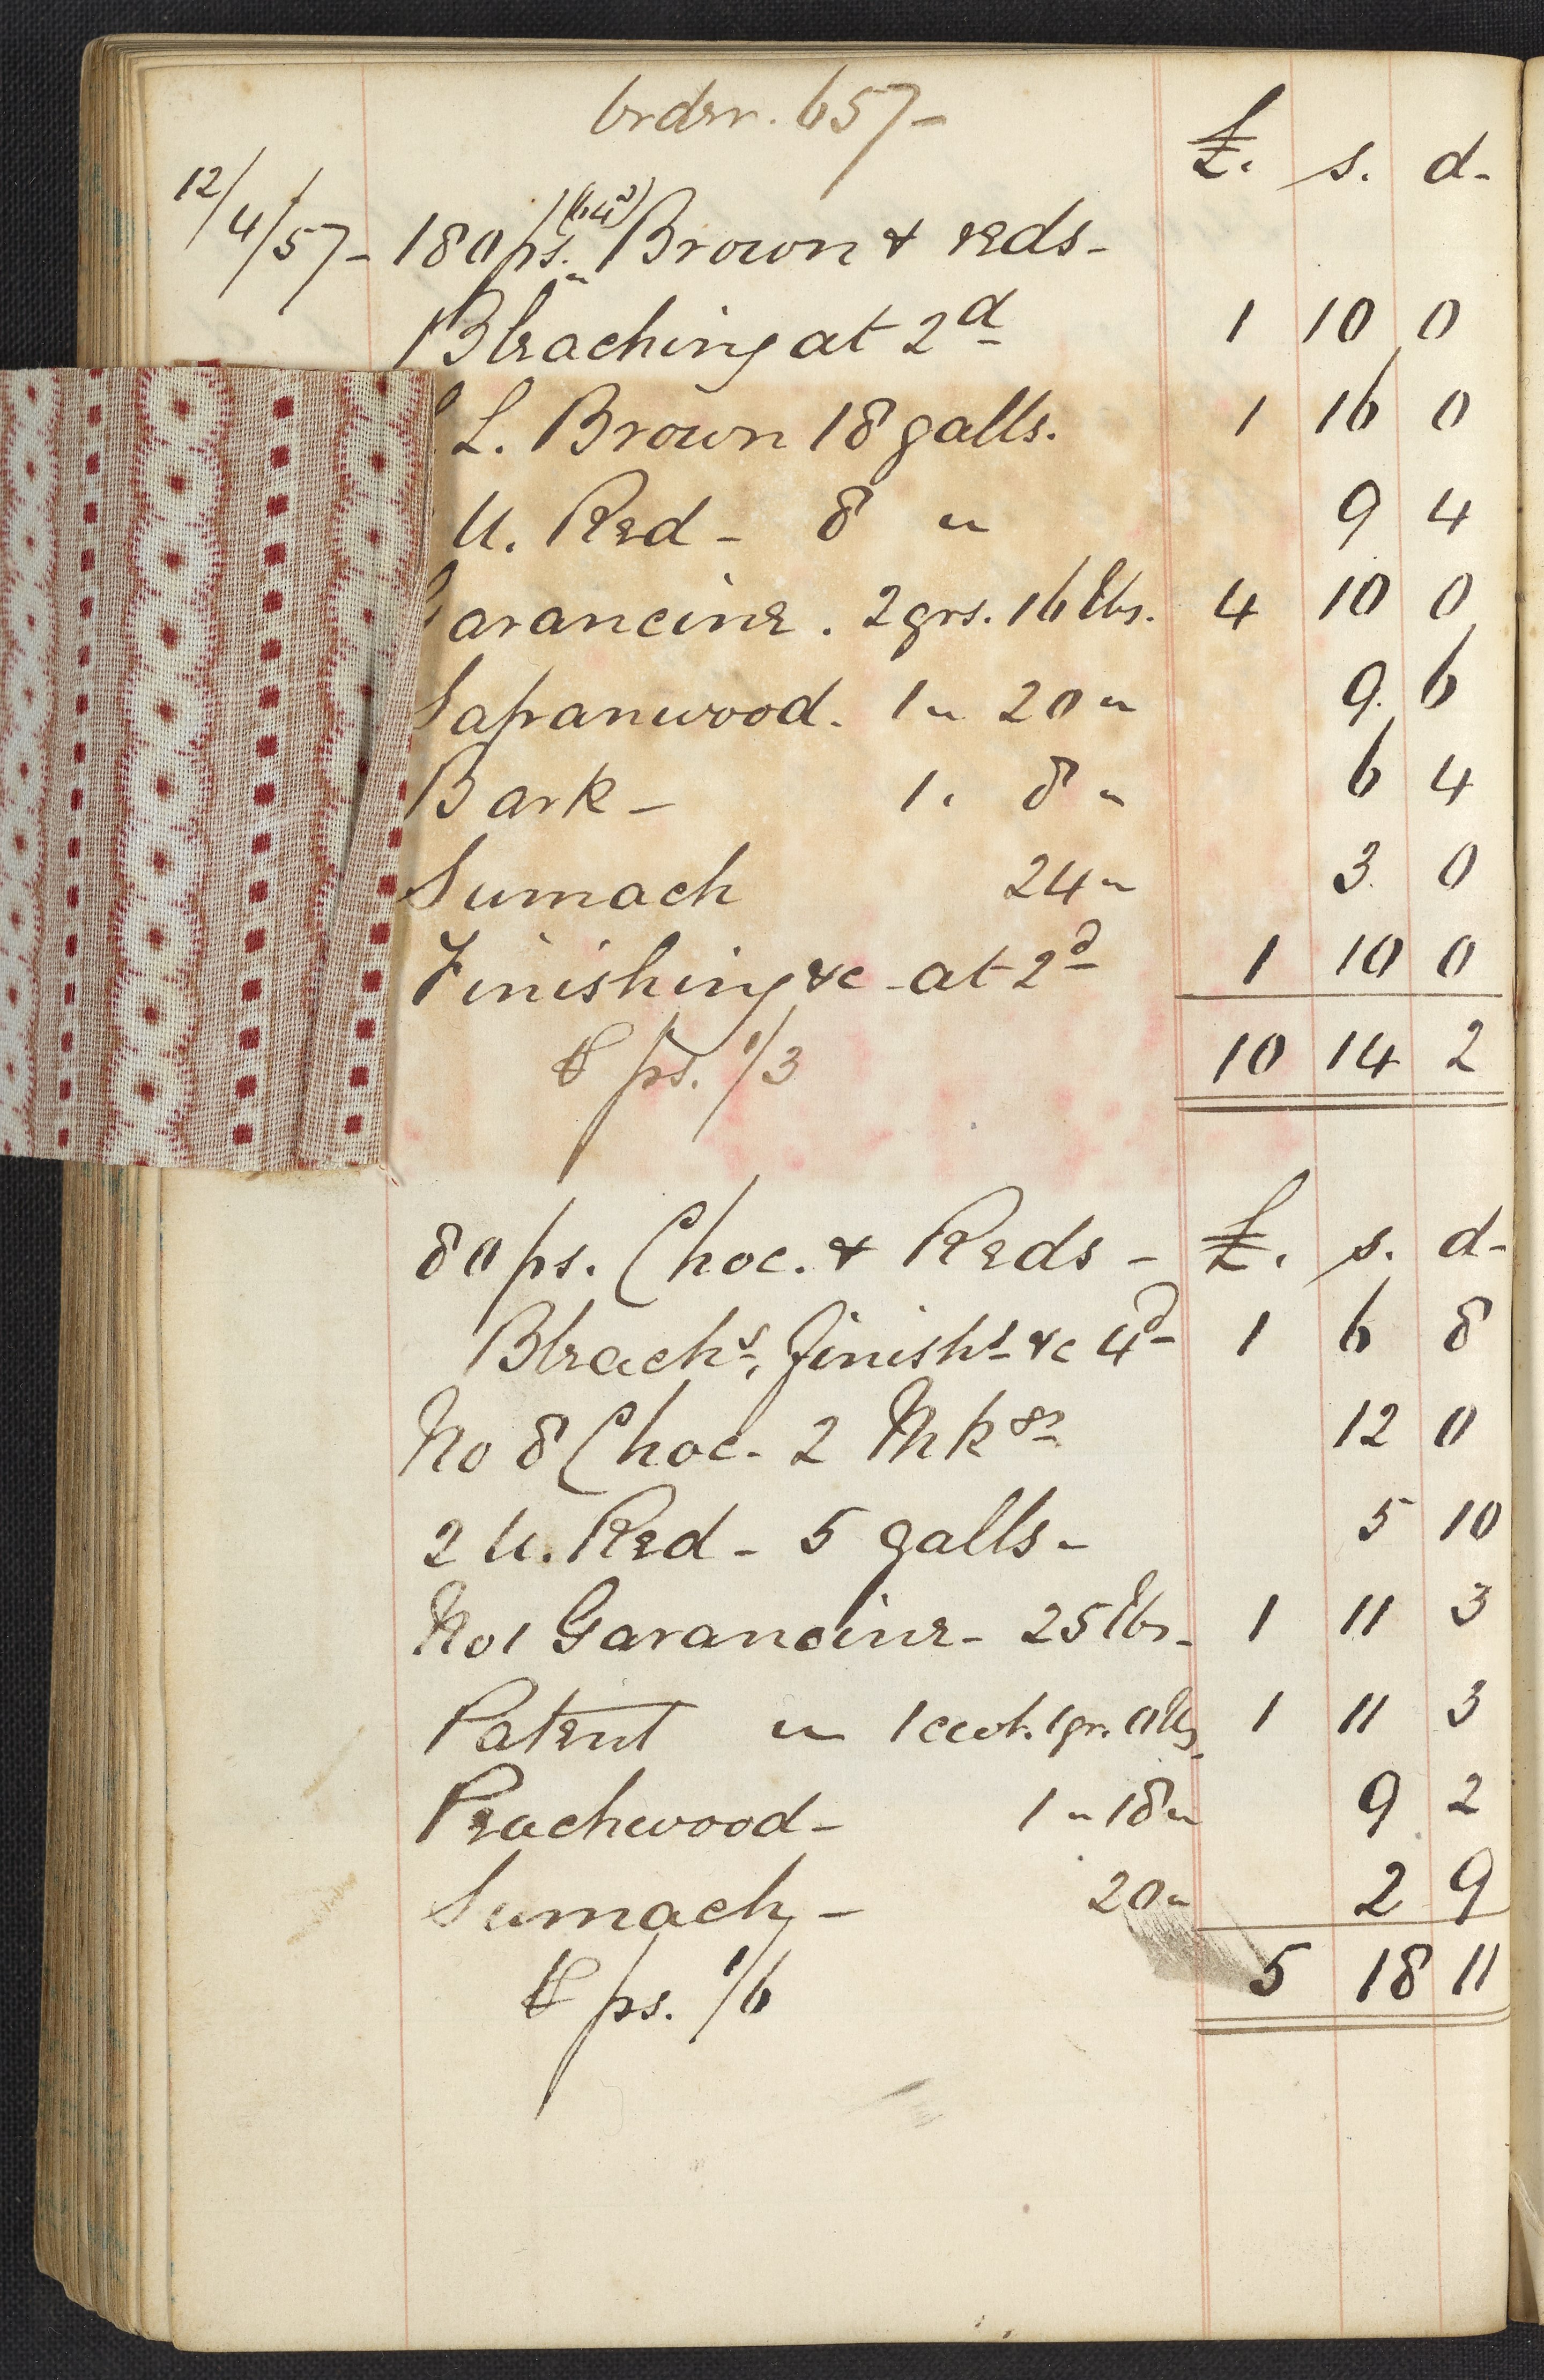 657-
£. s. d-
12/4/57- 180 ps. Brown & reds-
Bleaching at 2d 1 10 0
L. Brown 18 galls. 1 16 0
U. Red - 8 " 9 4
arancine. 2 qrs. 16 lbs. 4 10 0
Sapanwood. 1 " 20 " 9. 6
Bark- 1. 8 " 6 4
Sumach 24 " 3. 0
Finishing &c at 2d 1 10 0
⅌ ps. 1/3 10 14 2
80 ps. Choc. & Reds - £. s. d-
Bleachg, finishg &c 4d 1 6 8
No 8 Choc- 2 12 0
2 U. Red - 5 galls- 5 10
No1 Garancine- 25 lbs- 1 11 3
Patent " 1 cwt. 1 qr. 0 lbs. 1 11 3
Peachwood- 1 " 18 " 9 2
Sumach- 20 " 2 9
⅌ ps. 1/6 5 18 11